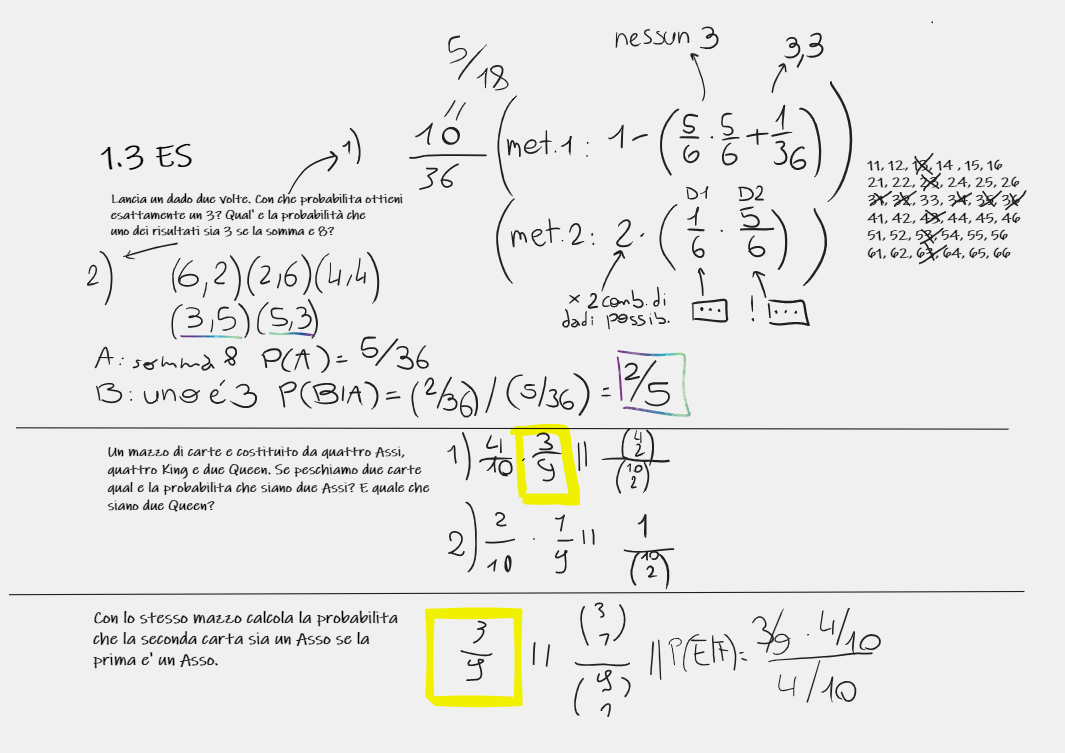 1.3 ES
Lancia un dado due volte. Con che probabilita ottieni
esattamente un 3? Qual' e la probabilità che
uno dei risultati sia 3 se la somma e 8?
1)
5/18
=
10/36
nessun 3
3,3
(met.1: 1 - (5/6 · 5/6 + 1/36))
D1 D2
(met.2: 2 · (1/6 · 5/6))
x 2 comb. di
dadi possib.
...
! ...
11, 12, 13, 14 , 15, 16
21, 22, 23, 24, 25, 26
31, 32, 33, 34, 35, 36
41, 42, 43, 44, 45, 46
51, 52, 53, 54, 55, 56
61, 62, 63, 64, 65, 66
2) (6,2) (2,6) (4,4)
(3,5) (5,3)
A: somma 8 P(A) = 5/36
B: uno é 3 P(B|A) = (2/36) / (5/36) = 2/5
Un mazzo di carte e costituito da quattro Assi,
quattro King e due Queen. Se peschiamo due carte
qual e la probabilita che siano due Assi? E quale che
siano due Queen?
1) 4/10 · 3/9 || (4 2)/(10 2)
2) 2/10 · 1/9 || 1/(10 2)
Con lo stesso mazzo calcola la probabilita
che la seconda carta sia un Asso se la
prima e' un Asso.
3/9 || (3 1)/(9 1) || P(E|F): 3/9 · 4/10 / 4/10